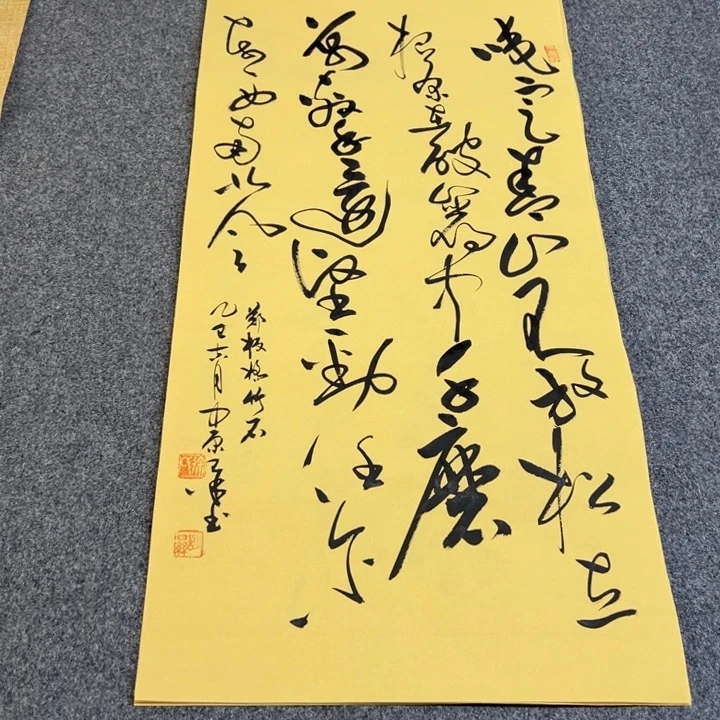 咬定青山不放松立
根原在破岩中千磨
万擊還堅勁任尔
东西南北风
鄭板橋竹石
乙巳六月中原